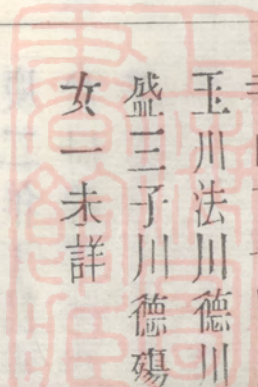 玉川法川德川
盛三子川德殤
女一未詳